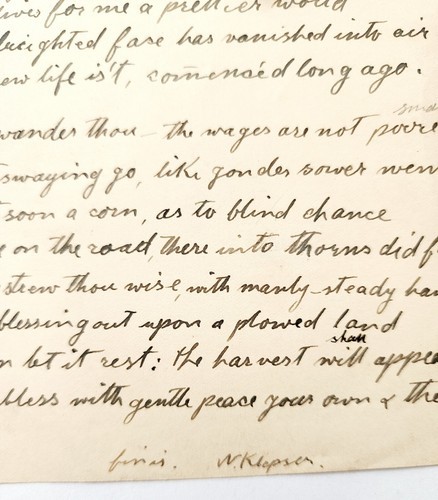 lives for me a prettier world
freighted fase has vanished into air
ew life is't, comenc'ed long ago.
wander thou - the wages are not poore
swaying go, like yonder sower wen
soon a corn, as to blind chance
e on the road, there into thorns did f
strew thou wise, with manly-steady ha
blessing out upon a plowed land
shall
n let it rest: the harvest will appea
bless with gentle peace your own & the
finis. N. Klopser.